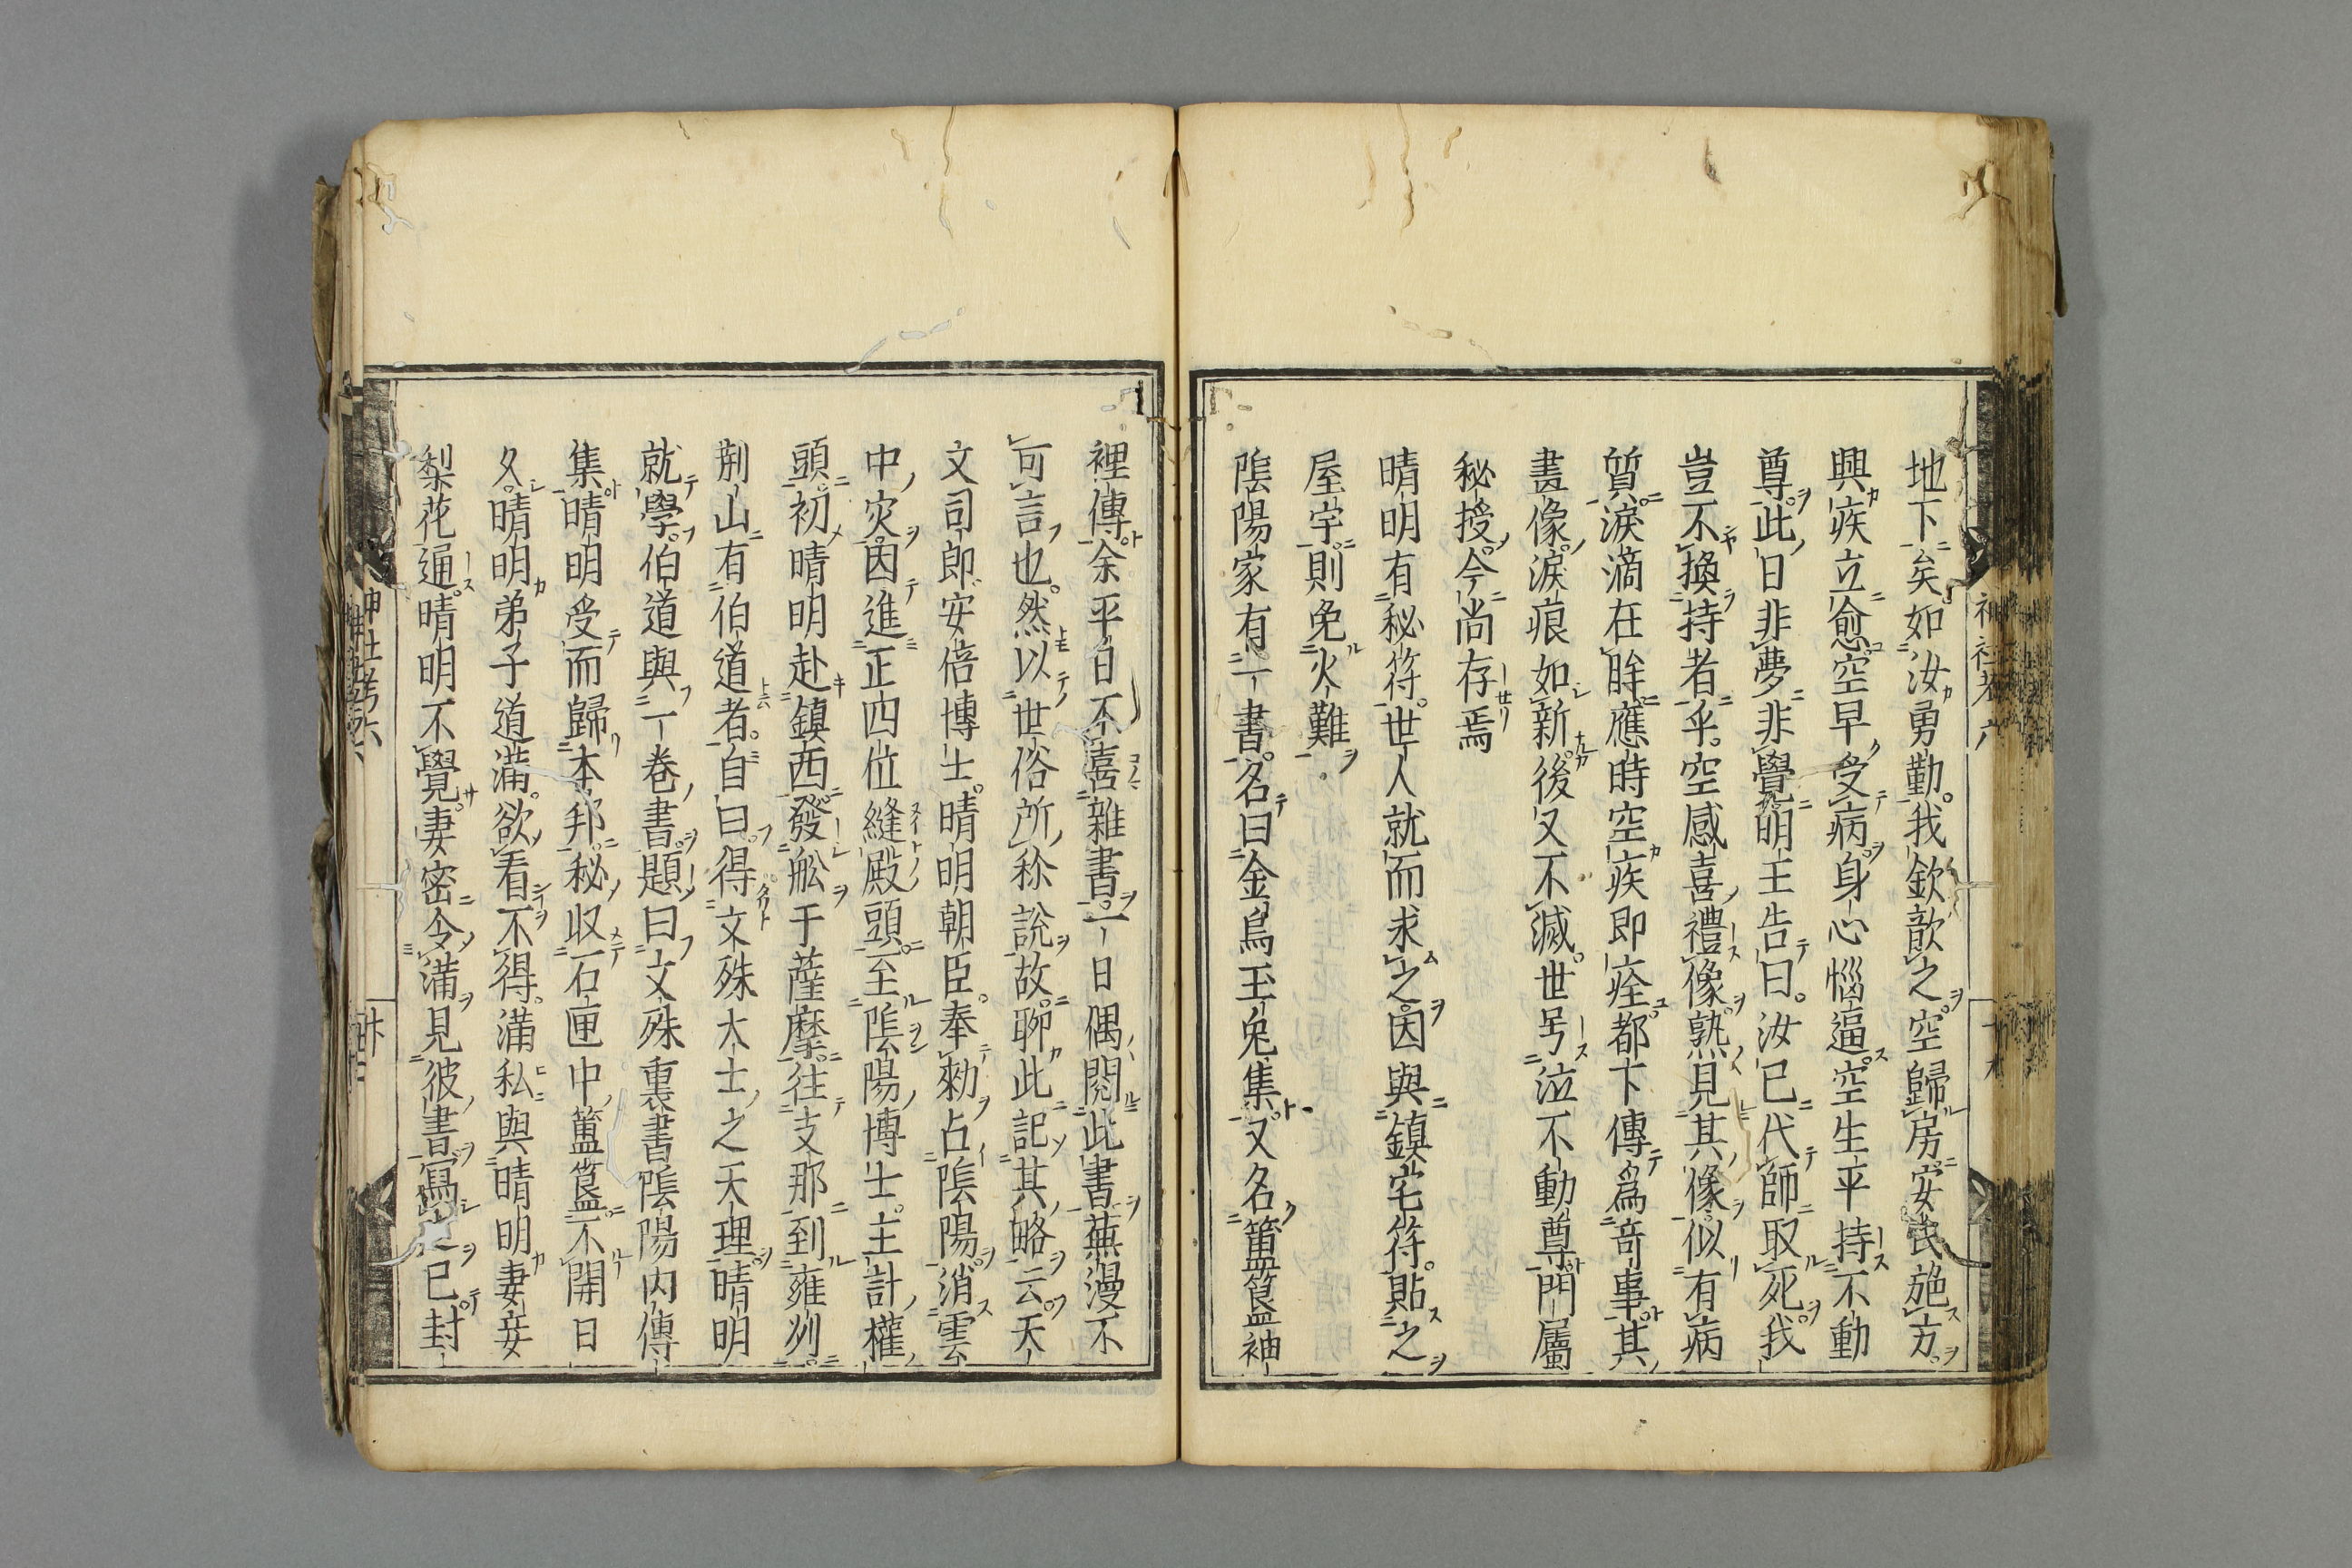 地下矣如汝勇勤我欽歆之空歸房安民施方
興疾立愈空早受病身心惱逼空生平持不動
尊此日非夢非覺明王告曰汝已代師取死我
豈不換持者乎空感喜禮像熟見其像似有病
質淚滴在眸應時空疾即痊都下傳爲奇事其
畫像淚痕如新後又不滅世号泣不動尊門屬
秘授今尚存焉
晴明有秘符世人就而求之因與鎮宅符貼之
屋宇則免火難
隂陽家有一書名曰金烏玉兎集又名簠簋袖
裡傳余平日不喜雜書一日偶閱此書蕪漫不
可言也然以世俗所称說故聊此記其略云天
文司郎安倍博士晴明朝臣奉勅占隂陽消雲
中灾因進正四位縫殿頭至隂陽博士主計權
頭初晴明赴鎮西發舩于薩摩往支那到雍州
荆山有伯道者自曰得文殊大士之天理晴明
就學伯道與一卷書題曰文殊裏書隂陽内傳
集晴明受而歸本邦秘収石匣中簠簋不開日
久晴明弟子道滿欲看不得滿私與晴明妻妾
梨花通晴明不覺妻密令滿見彼書寫已封
神社考六
神社考六